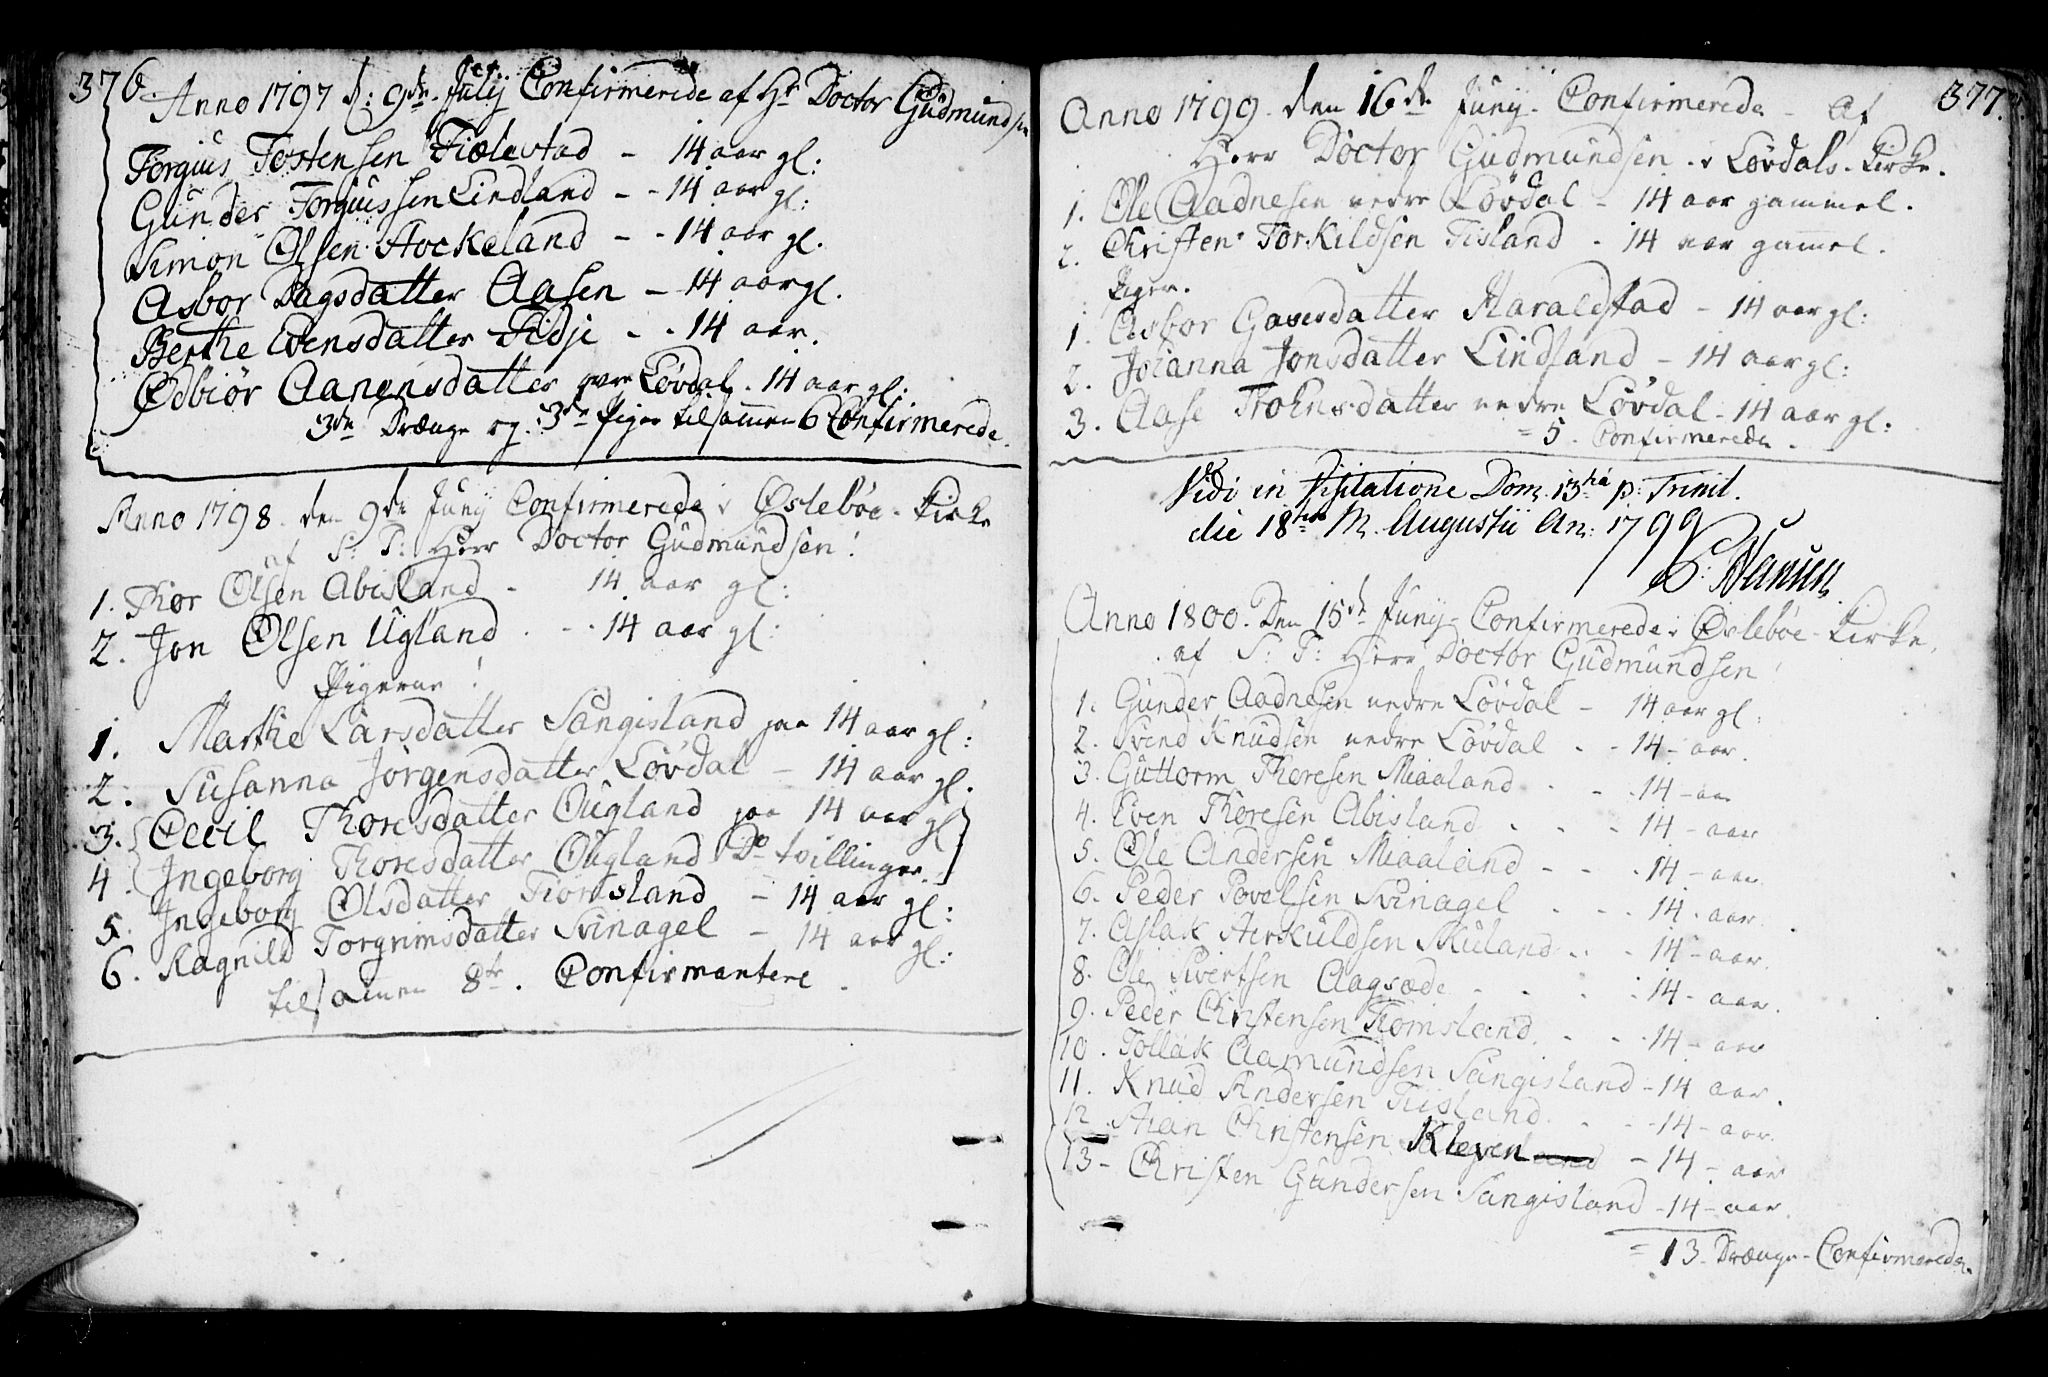 376.
Anno 1797 d: 9de July Confirmerede af Hr Doctor Gudmundsen
Torgius Tostensen Fiolestad - 14 aar gl:
Gunder Torgiussen Lindland - - 14 aar gl:
Simon Olsen Stockeland - - 14 aar gl.
Asbor Dagsdatter Aasen - 14 aar gl.
Berthe Evensdatter Fidje - - 14 aar.
Ødbiør Aanensdatter øvre Løvdal. 14 aar gl:
3de Drænge og 3de Piger tilsammen 6 Confirmerede.
Anno 1798. den 9de Juny Confirmerede i Øslebøe-Kirke
af S: T: Herr Doctor Gudmundsen!
1. Thor Olsen Abisland - 14 aar gl:
2. Jon Olsen Ugland . - . 14 aar gl:
Pigerne!
1. Marthe Larsdatter Sangisland paa 14 aar gl:
2. Susanna Jørgensdatter Løvdal - 14 aar gl.
3. Cecil Thoresdatter Ougland paa 14 aar gl
4. Ingeborg Thoresdatter Ougland Do tvillinger.
5. Ingeborg Olsdatter Tiomsland - 14 aar gl:
6. Ragnild Torgrimsdatter Svinagel - 14 aar gl:
tilsamen 8te. Confirmantere.
377.
Anno 1799. den 16de Juny. Confirmerede - Af
Herr Doctor Gudmundsen i Løvdals-Kirke.
1. Ole Aadnesen nedre Løvdal - 14 aar gammel.
2. Christen Torkildsen Tisland - 14 aar gamel.
Piger.
1. Asbor Gavesdatter Haraldstad - 14 aar gl:
2. Johanna Jonsdatter Lindland - 14 aar gl:
3. Aase Trohnsdatter nedre Løvdal - 14 aar gl:
= 5. Confirmerede.
Vidi in Visitatione Dom. 13tia p: Trinit.
die 18va M. Augustii An: 1799
P: Hansen
Anno 1800. Den 15de Juny. Confirmerede i Øslebøe-Kirke,
af S: T: Herr Doctor Gudmundsen!
1. Gunder Aadnesen nedre Løvdal - 14 aar gl:
2. Svend Knudsen nedre Løvdal . - 14 - aar.
3. Guttorm Thoresen Miaaland . - . 14 - aar
4. Even Thoresen Abisland . . . 14 - aar
5. Ole Andersen Miaaland - - . 14 - aar
6. Peder Povelsen Svinagel . - . 14 . aar.
7. Aslak Aerskuldsen Skuland . . . 14 - aar.
8. Ole Sivertsen Aagsæde . . . . 14 - aar.
9. Peder Christensen Tiomsland . - . 14 - aar
10. Tollak Aamundsen Sangisland - 14 aar.
11. Knud Andersen Tiisland . . - 14 - aar.
12. Stian Christensen Kleven - 14 - aar
13 - Christen Gundersen Sangisland - 14 - aar.
= 13. Drænge - Confirmerede.